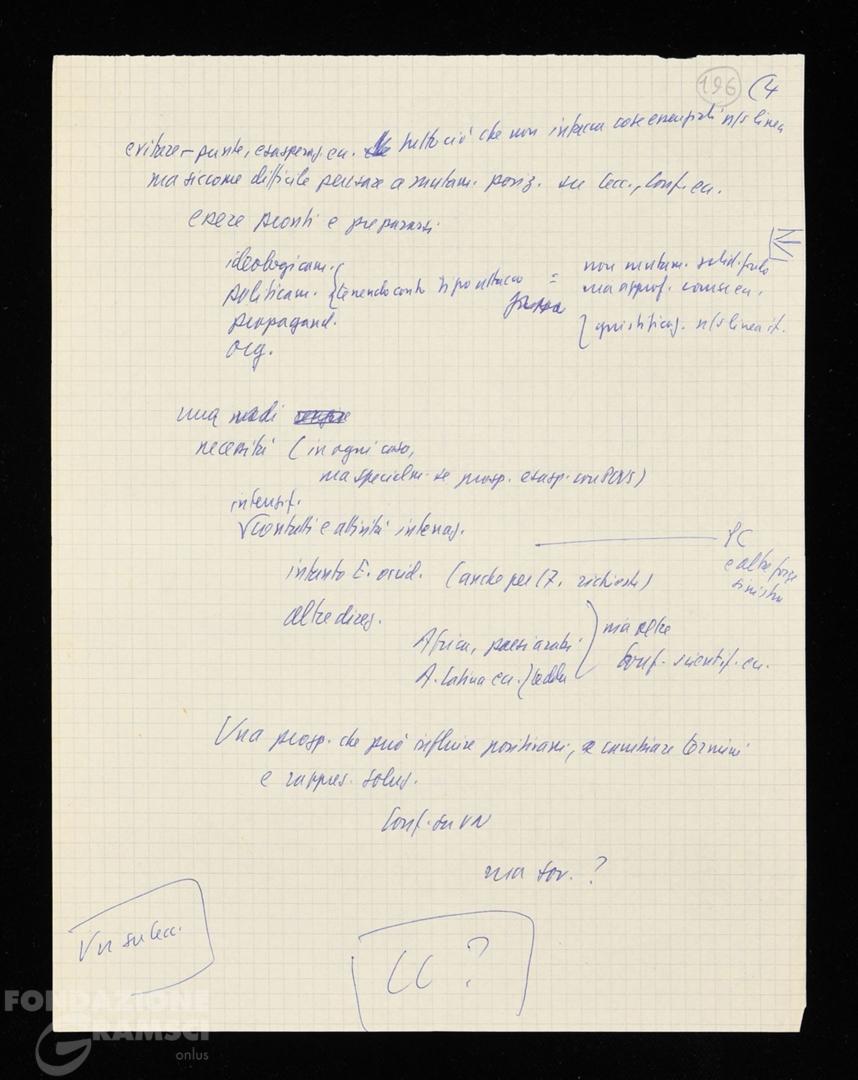 196 (4
evitare punte, esasperaz. ecc. tutto ciò che non intacca cose essenziali n/s linea
ma siccome difficile pensare a mutam. posiz. su Cec., Conf. ecc.
essere pronti e prepararsi
ideologicam.
politicam. tenendo conto tipo attacco = non mutam. solid. fondo
ma approf. comune ecc.
propagand. giustificaz. n/s linea it.
org.
necessità (in ogni caso,
ma specialm. se prosp. esasp. con PCUS)
intensif.
contatti e attività internaz. PC
e altre forze
sinistra
intanto E. occid. (anche per 17, richieste)
altre direz.
Africa, paesi arabi ma oltre
A. Latina ecc. Conf. scientif. ecc.
Una prosp. che può influire positivam., e cambiare termini
e rappres. soluz.
Conf. su VN
ma sov. ?
VN su Cec.
CC ?
FONDAZIONE
GRAMSCI
onlus